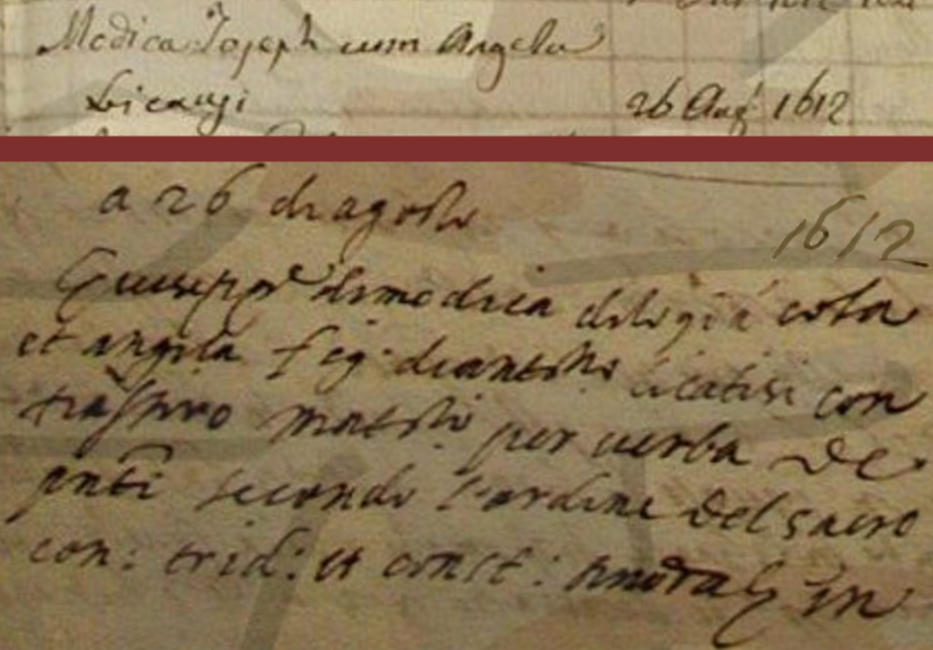 Medica Joseph cum Angela
Licausi 26 Aug 1612
a 26 di agosto
1612
Giuseppe dimedica di cola
et angila fig: di licatisi con
matrio per verba de
pnti secondo l'ordine del sacro
con: trid: et const: sinodali in